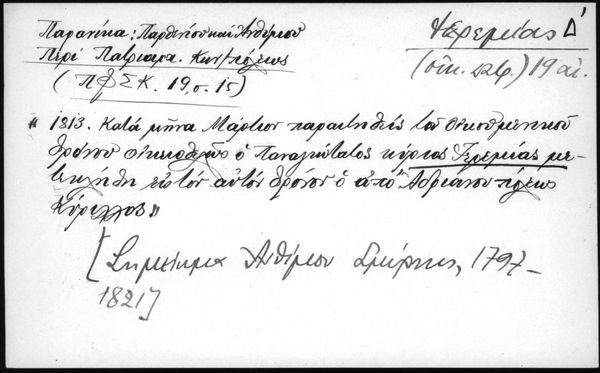 Παρανίκα: Παρθενίου καὶ Ἀνθίμου
Περί Πατριαρχ. Κων/πόλεως
(ΠΦΣΚ. 19, σ. 15)
Ἱερεμίας Δ'
(οἰκ. πατρ.) 19 αἰ.
« 1813. Κατά μῆνα Μάρτιον παραιτηθείς τοῦ Οἰκουμενικοῦ
θρόνου οἰκειοθελῶς ὁ Παναγιώτατος κύριος Ἱερεμίας με-
τεκλήθη εἰς τόν αὐτόν θρόνον ὁ ἀπό Ἀδριανουπόλεως
Κύριλλος »
[Σημείωμα Ἀνθίμου Σμύρνης, 1797-
1821]